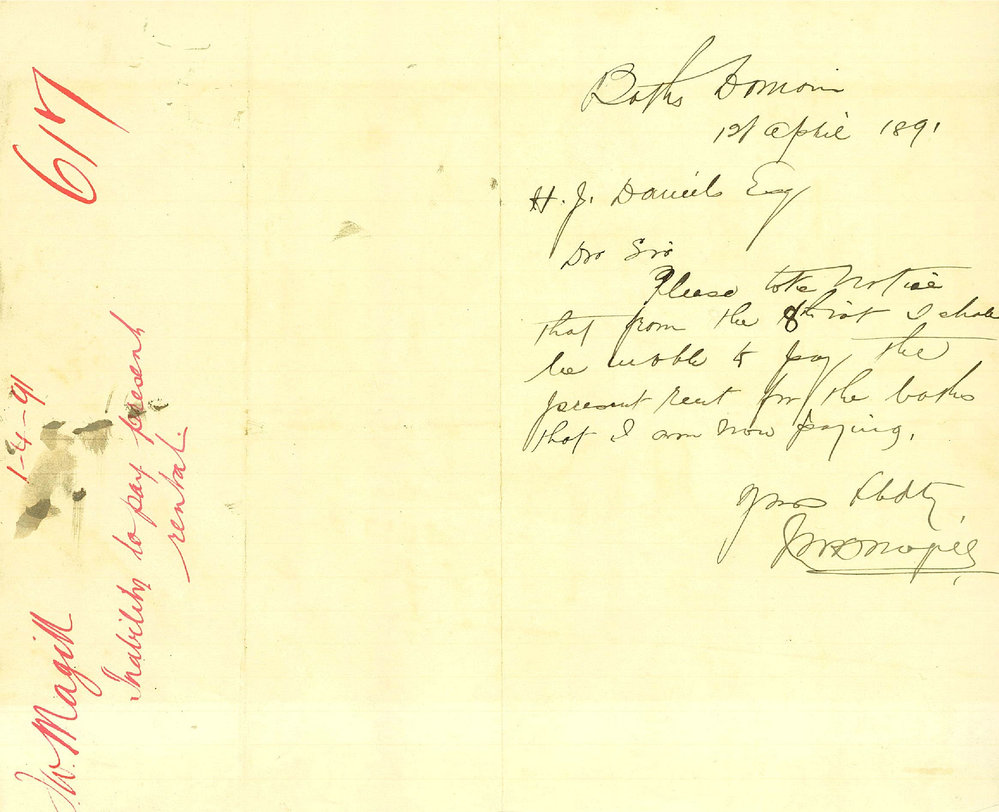 Baths Domain
1st April 1891
H. J. Daniels Esq
Dr Sir
Please take Notice
that from the 8th inst I shall
be unable to pay the
present rent for the baths
that I am now paying.
Yours
Magill
617
1-4-91
W. Magill
Inability to pay present
rental.